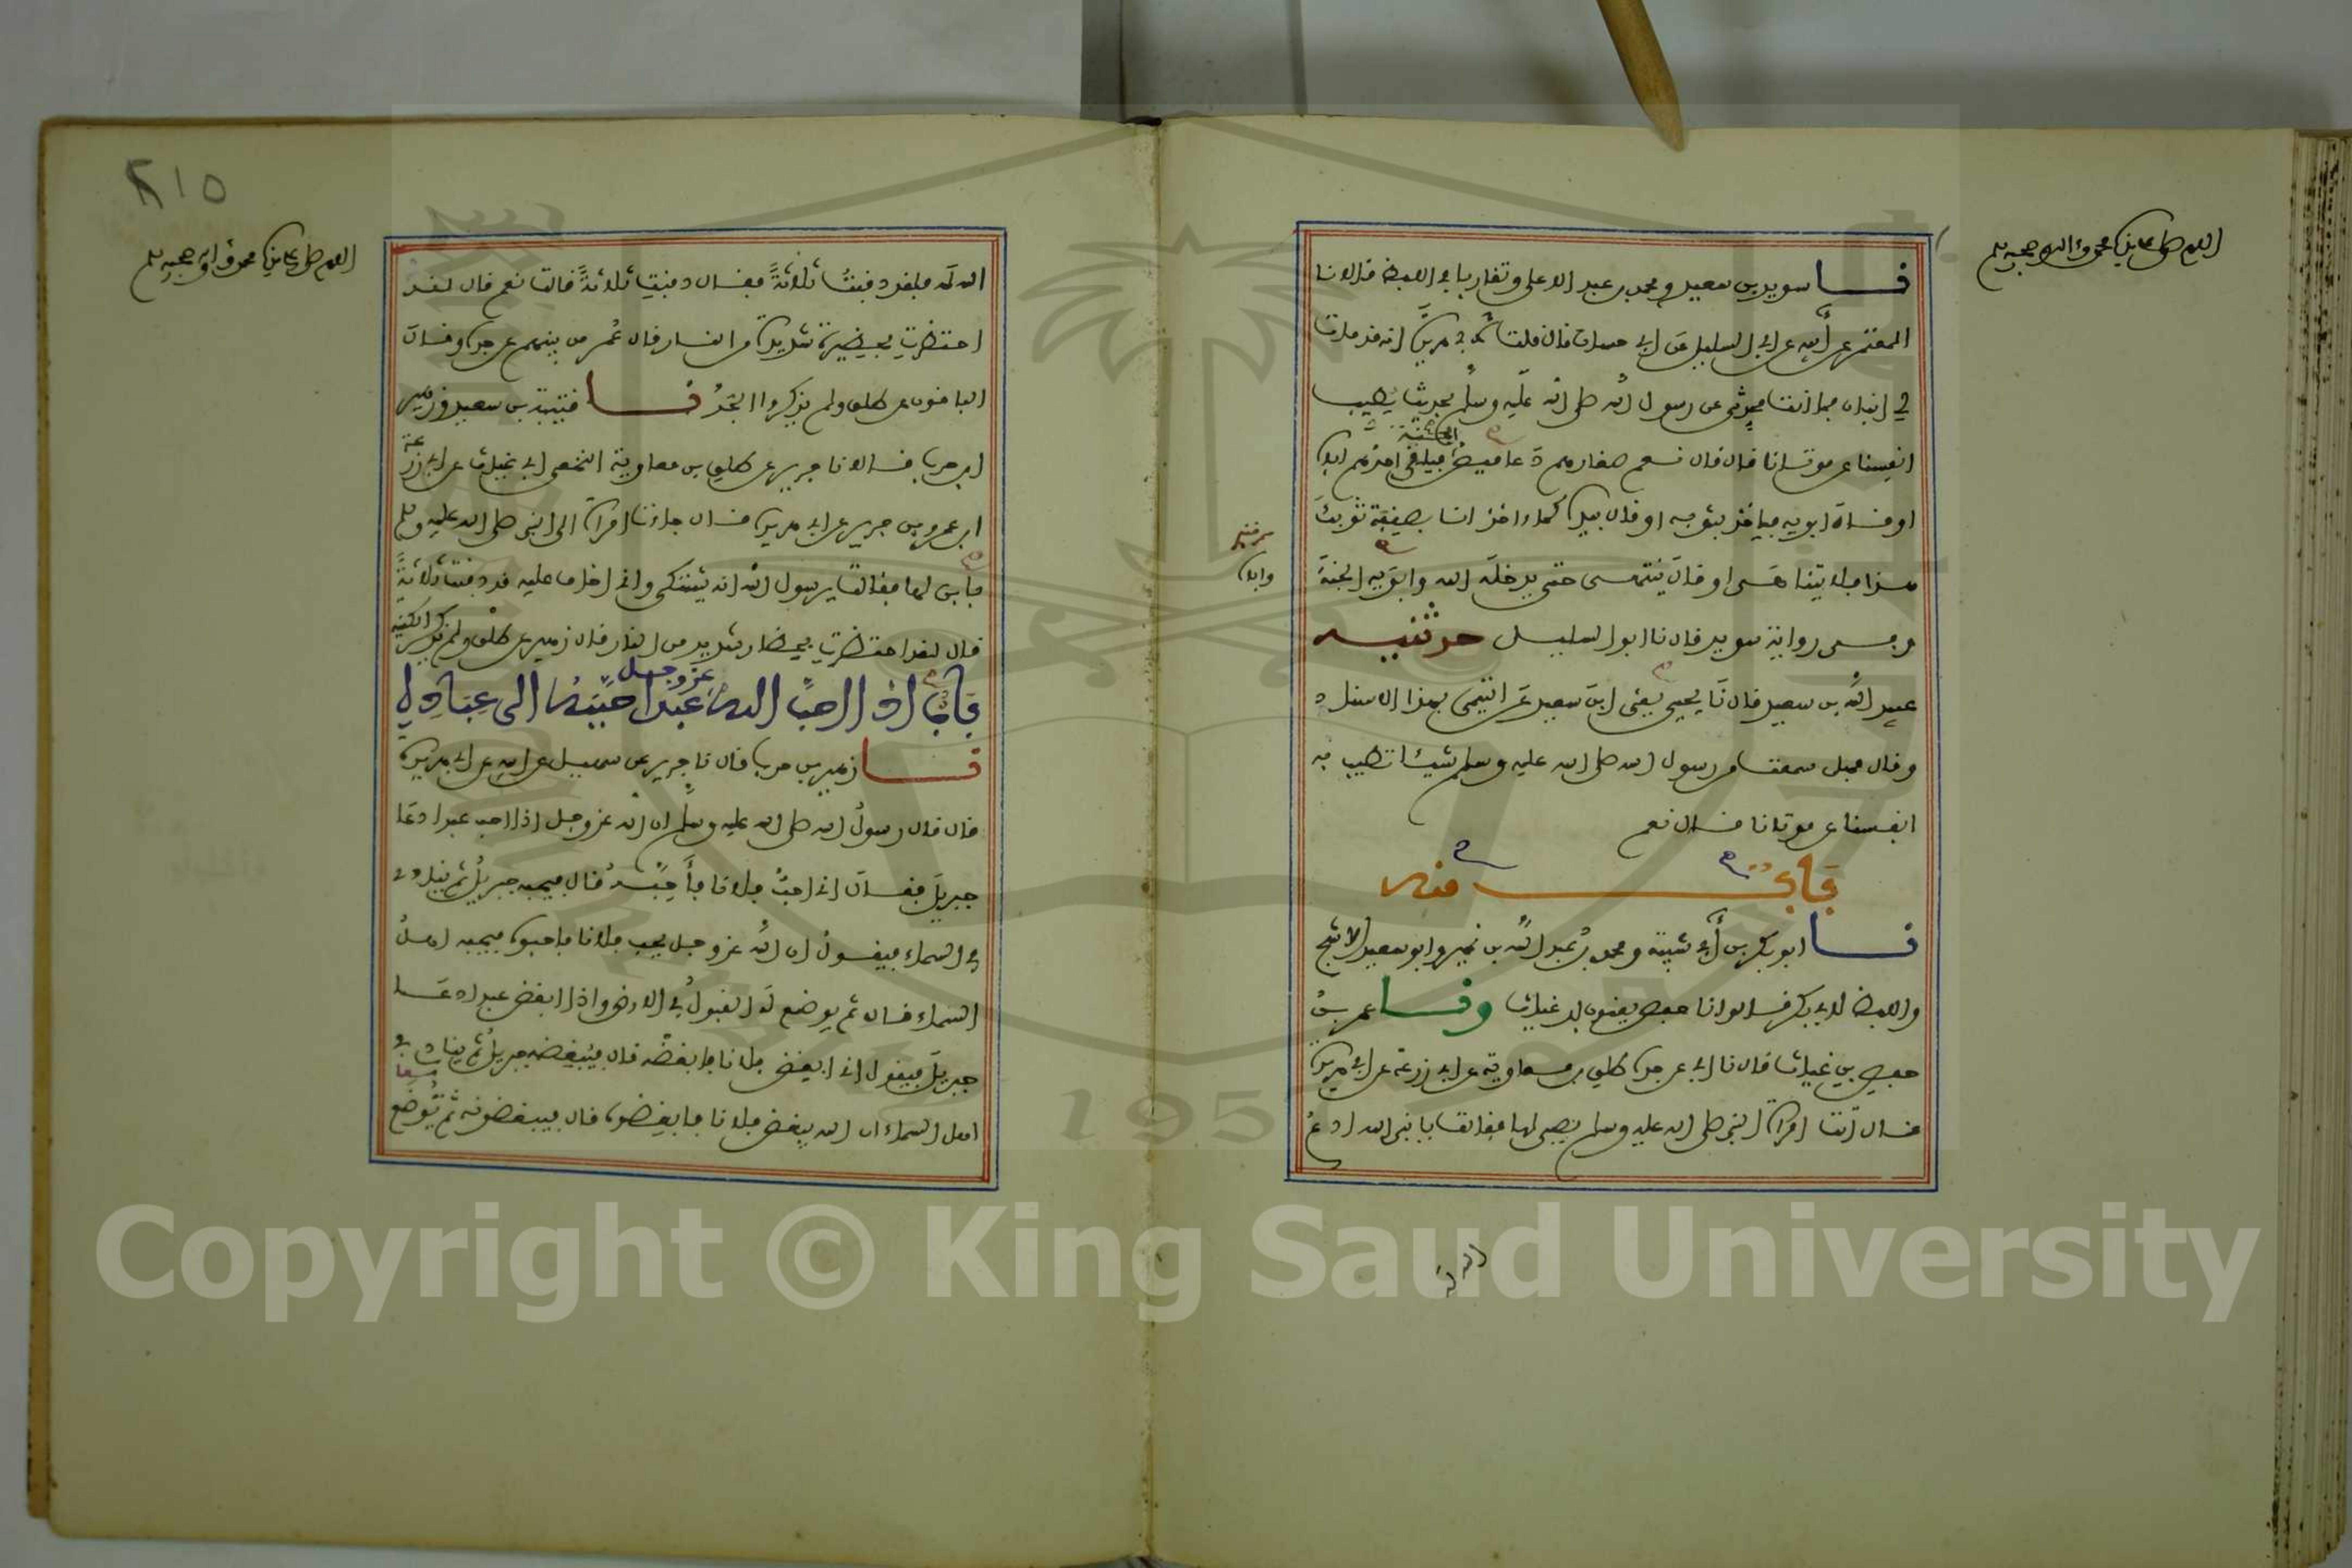 اللهم صل على سيدنا محمد وءاله وصحبه وسلم
نا سويد بن سعيد ومحمد بن عبد الاعلى وتقاربا في اللفظ قالا نا
المعتمر عن أبيه عن ابي السليل عن ابي حسان قال قلت لأبي هريرة انه قد مات
لي ابنان فما انت محدثي عن رسول الله صلى الله عليه وسلم بحديث يطيب
انفسنا عن موتانا قال قال نعم صغارهم دعاميص الجنة فيلقى احدهم اباه
او قال ابويه فيأخذ بثوبه او قال بيده كماء اخذ انا بصنفة ثوبك
هذا فلا يتناهى او قال ينتهى حتى يدخله الله وابويه الجنة
وفي رواية سويد قال نا ابو السليل حدثنيه
عبيد الله بن سعيد قال نا يحيى يعني ابن سعيد عن التيمي بهذا الاسناد
وقال فهل سمعت من رسول الله صلى الله عليه وسلم شيئا تطيب به
انفسنا عن موتانا قال نعم
باب منه
نا ابو بكر بن أبي شيبة ومحمد بن عبد الله بن نمير وابو سعيد الاشج
واللفظ لابي بكر قالوا نا حفص يعنون ابن غياث ونا عمر بن
حفص بن غياث قال نا ابي عن جده طلق بن معاوية عن ابي زرعة عن ابي هريرة
قال اتت امرأة النبي صلى الله عليه وسلم بصبي لها فقالت يا نبي الله ادع
الله له
٢١٥
اللهم صل على سيدنا محمد وءاله وصحبه وسلم
الله له فلقد دفنت ثلاثة فقال دفنت ثلاثة قالت نعم قال لقد
احتظرت بحظيرة شديدة من النار قال عمر من بينهم عن جده وقال
الباقون عن طلق ولم يذكروا الجد نا قتيبة بن سعيد وزهير
ابن حرب قالا نا جرير عن طلق بن معاوية النخعي ابي غياث عن ابي زرعة
ابن عمرو بن جرير عن ابي هريرة قال جاءت امرأة الى النبي صلى الله عليه وسلم
بابن لها فقالت يرسول الله انه يشتكي واني اخاف عليه قد دفنت ثلاثة
قال لقد احتظرت بحظار شديد من النار قال زهير عن طلق ولم يذكر الكنية
باب اذا احب الله عز وجل عبدا حببه الى عباده
نا زهير بن حرب قال نا جرير عن سهيل عن ابيه عن ابي هريرة
قال قال رسول الله صلى الله عليه وسلم ان الله عز وجل اذا احب عبدا دعا
جبريل فقال اني احب فلانا فأحبه قال فيحبه جبريل ثم ينادي
في السماء فيقول ان الله عز وجل يحب فلانا فاحبوه فيحبه اهل
السماء قال ثم يوضع له القبول في الارض واذا ابغض عبدا دعا
جبريل فيقول اني ابغض فلانا فابغضه قال فيبغضه جبريل ثم ينادي في
اهل السماء ان الله يبغض فلانا فابغضوه قال فيبغضونه ثم توضع
1957
Copyright © King Saud University